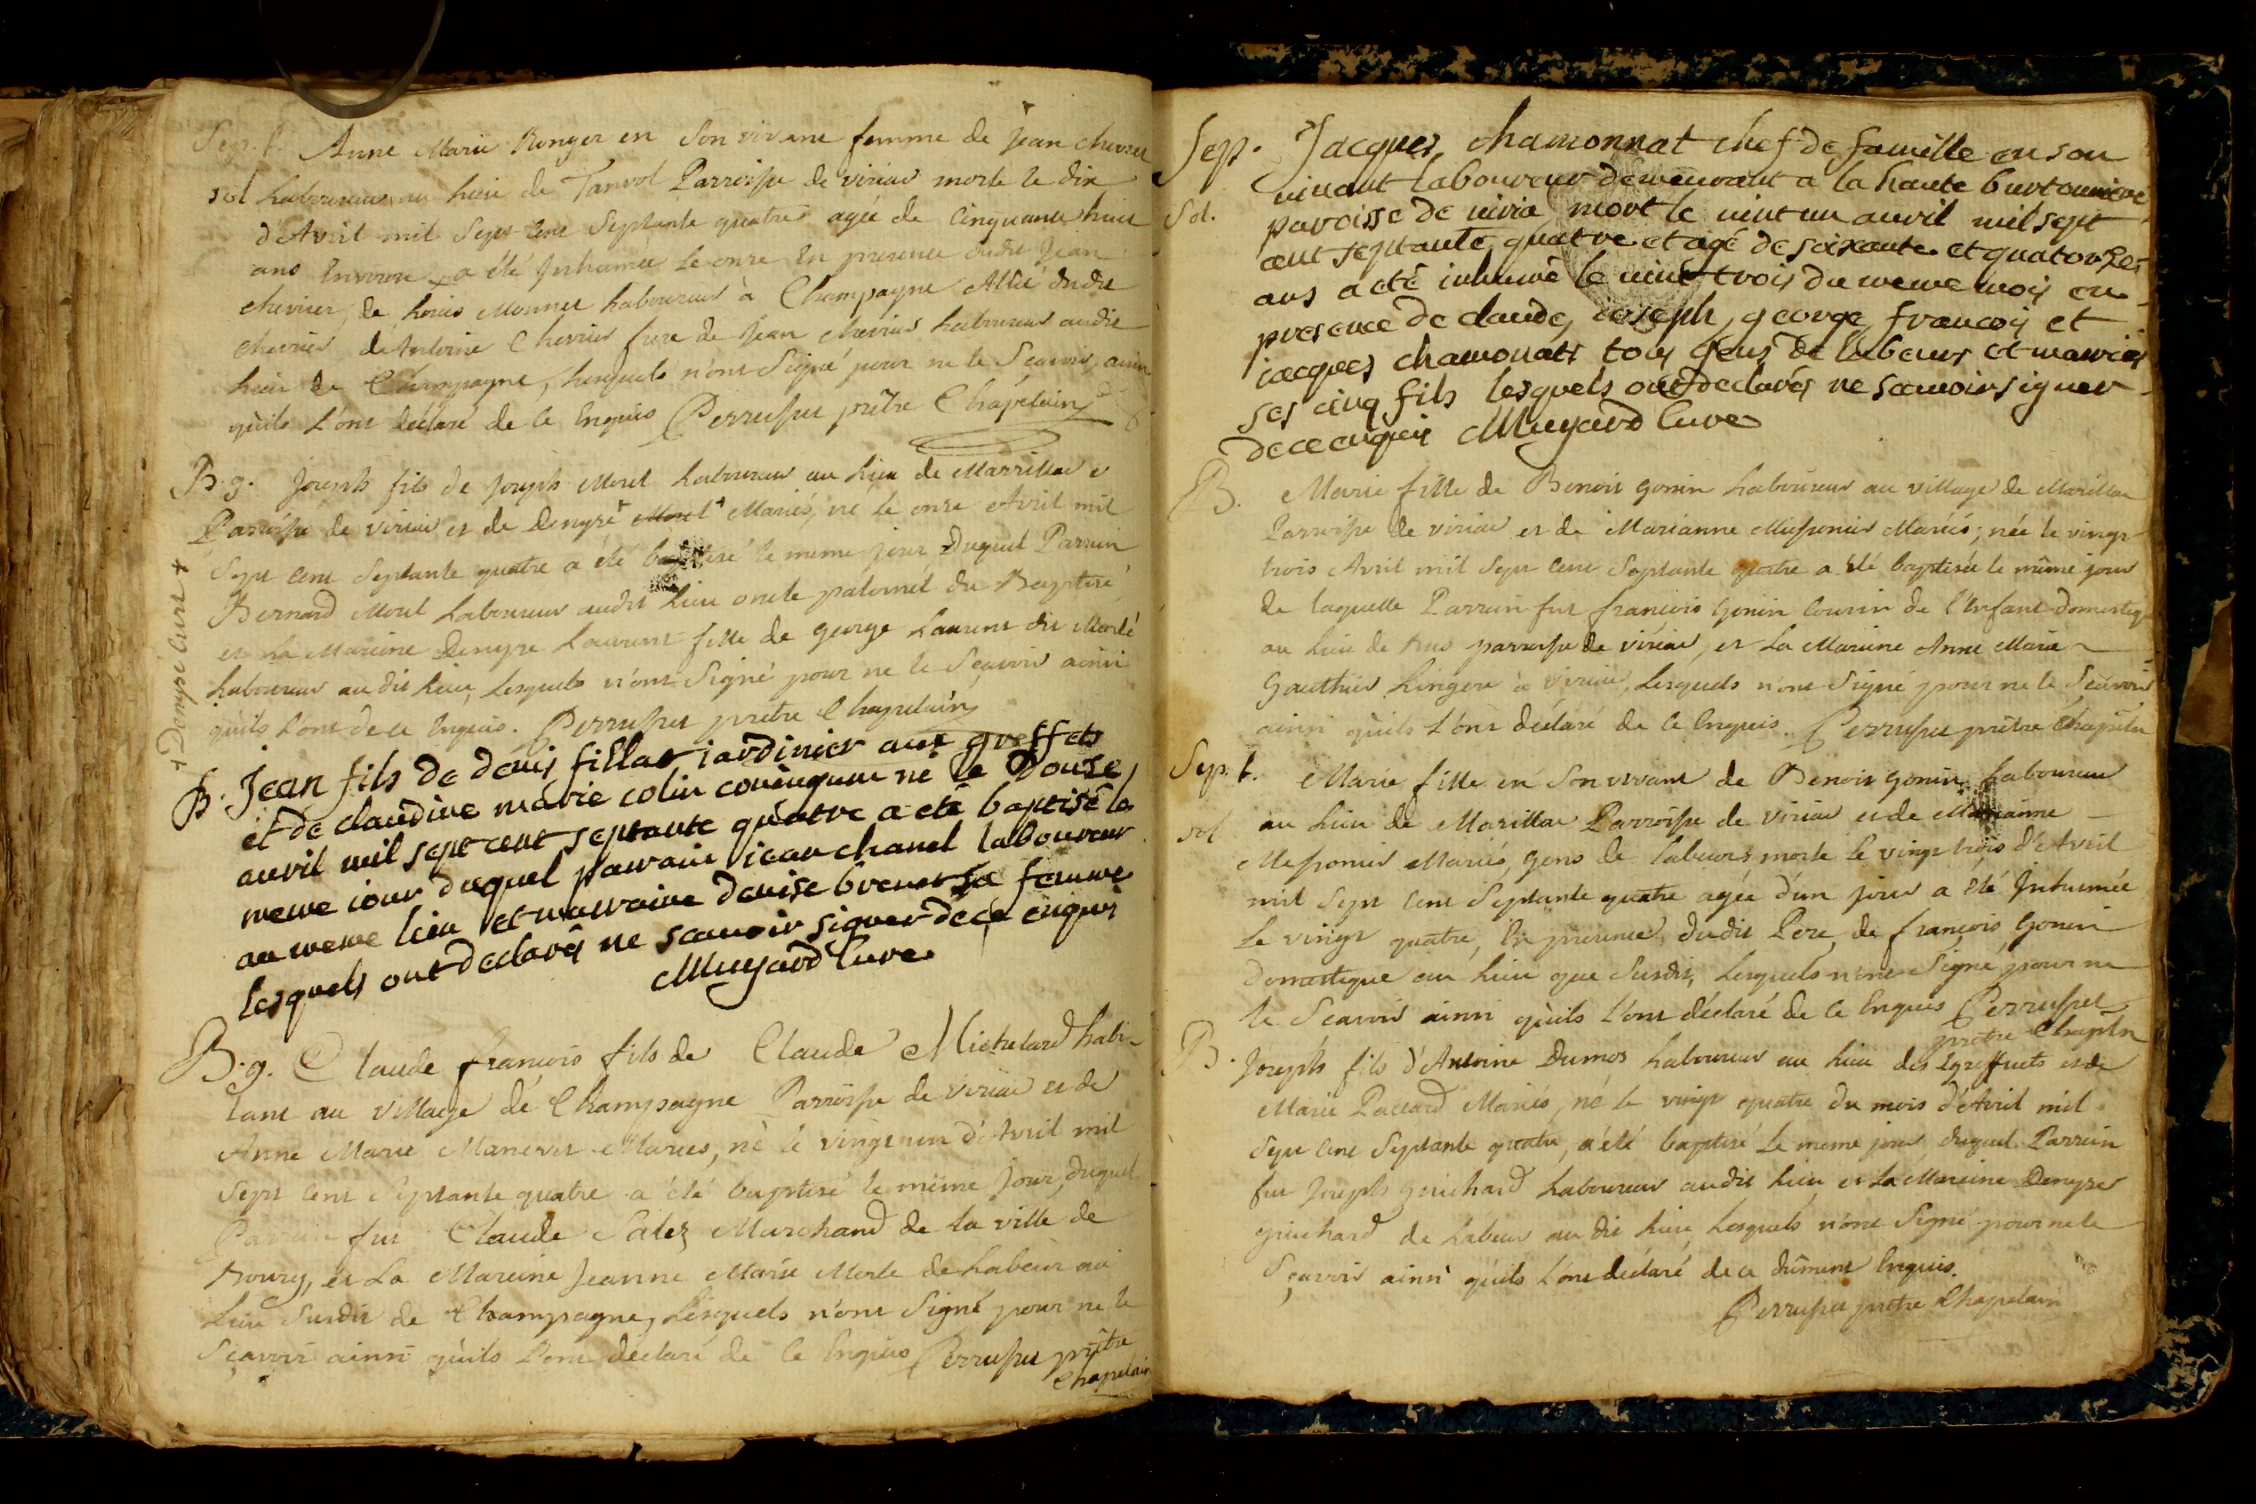 Sep. f. Anne Marie Ronger en son vivant femme de Jean chevrier
sol laboureur au lieu de Tanvol Parroisse de viriat morte le dix
d'Avril mil sept cent septante quatre agée de cinquante huit
ans Environ a été Inhumée le onze En presence dudit Jean
chevrier, de Louis Monnet laboureur à Champagne Allié dudit
chevrier de Antoine Chevrier frere de Jean chevrier laboureur audit
lieu de Champagne, lesquels n'ont Signé pour ne le Scavoir ainsi
qu'ils l'ont déclaré de ce Enquis Perrusset prêtre Chapelain
B. g. Joseph fils de Joseph Morel laboureur au lieu de Marrillat
Parroisse de viriat et de Denyse + Morel + Mariés, né le onze Avril mil
sept cent septante quatre a été baptisé le meme jour Duquel Parrein
Bernard Morel laboureur audit lieu oncle paternel du Baptisé
et la Mareine Denyse Laurent fille de George Laurent dit Merlé
laboureur au dit lieu, lesquels n'ont Signé pour ne le Sçavoir ainsi
qu'ils l'ont de ce Enquis. Perrusset prêtre Chapelain
+ Denyse Curt +
B. Jean fils de denis fillat iardinier aux greffets
et de claudine marie colin couniquau né le Douse
auvril mil sept cent septante quatre a eté baptisé le
meme iour duquel parrain iean chanel laboureur
au meme lieu et marraine denise brevet sa femme
lesquels ont declarés ne scauoir signer de ce enquis
Muyard Curé
B. g. Claude francois fils de Claude Michelard habi-
tant au village de Champagne Parroisse de viriat et de
Anne Marie Maneret Mariés, né le vingt un d'Avril mil
sept cent septante quatre a été baptisé le même Jour, duquel
Parrein fut Claude Salez Marchand de la ville de
Bourg, et la Mareine Jeanne Marie Merle de Labeur au
lieu susdit de Champagne, lesquels n'ont Signé pour ne le
Sçavoir ainsi qu'ils l'ont déclaré de ce Enquis Perrusset prêtre
Chapelain
Sep. Jacques chamonnat chef de famille en son
viuant laboureur demeurant a la haute burtonniere
Sol. paroisse de uiria mort le uint un auvril mil sept
cent septante quatre et agé de soixante et quatorze
ans a eté inhumé le uint trois du meme mois en
presence de claude, ioseph, george, francois et
iacques chamonats tous gens de labeurs et mariés
ses cinq fils lesquels ont declarés ne scauoir signer
de ce enquis Muyard Curé
B. Marie fille de Benoit gonin laboureur au village de Marillat
Parroisse de viriat et de Marianne Messonier Mariés; née le vingt
trois Avril mil sept cent septante quatre a été baptisée le même jour
de laquelle Parrein fut francois Gonin Cousin de l'Enfant domestique
au lieu de parroisse de viriat, et la Mareine Anne Marie
Gauthier Lingere à viriat, lesquels n'ont Signé pour ne le Scavoir
ainsi qu'ils l'ont déclaré de ce Enquis. Perrusset prêtre Chapeln
Sep. f. Marie fille en son vivant de Benoit gonin laboureur
sol au lieu de Marillat Parroisse de viriat et de Marianne
Messonier Mariés, gens de labeurs morte le vingt trois d'Avril
mil sept cent septante quatre agée d'un jour a été Inhumée
le vingt quatre, En presence dudit Pere, de françois Gonin
domestique au lieu que susdit, lesquels n'ont Signé pour ne
le Scavoir ainsi qu'ils l'ont déclaré de ce Enquis Perrusset
prêtre Chapeln
B. Joseph fils d'Antoine Dumas laboureur au lieu des Egreffiets et de
Marie Paccard Mariés, né le vingt quatre du mois d'Avril mil
sept cent septante quatre, a été baptisé le meme jour duquel Parrein
fut Joseph guichard laboureur audit lieu et la Mareine Denyse
guichard de Labeur au dit lieu, lesquels n'ont Signé pour ne le
Sçavoir ainsi qu'ils l'ont déclaré de ce dûment Enquis.
Perrusset prêtre Chapelain